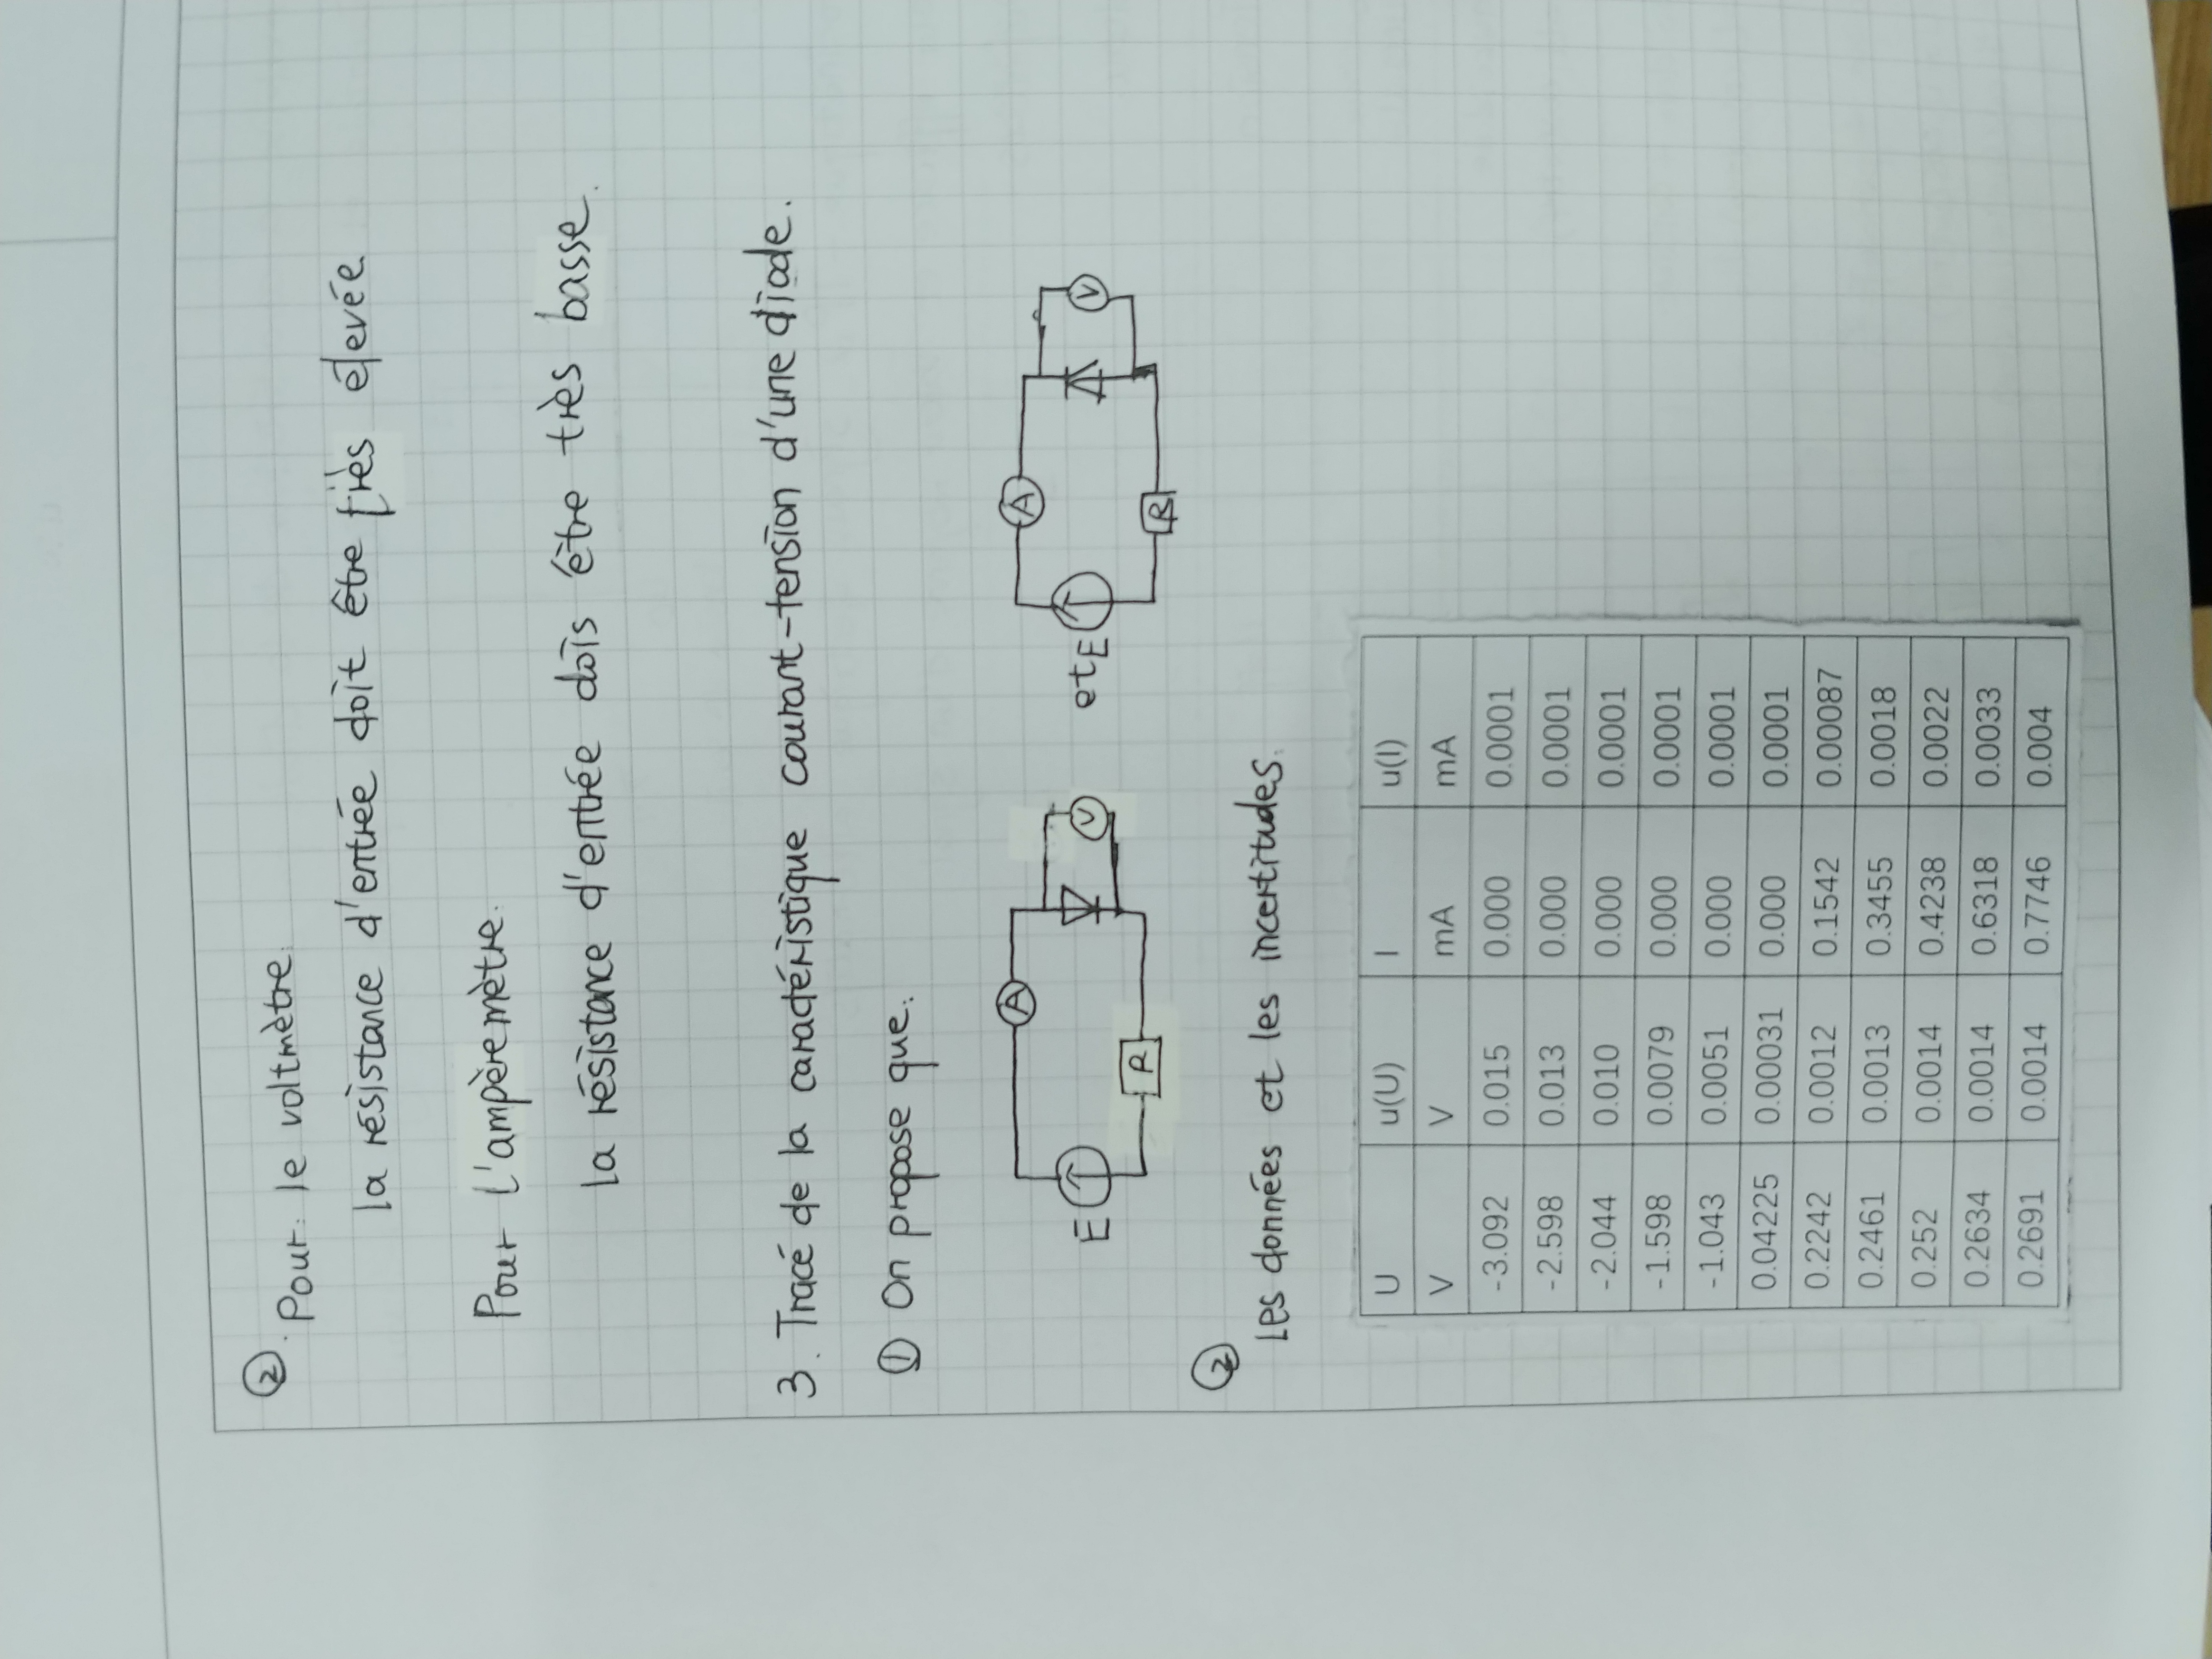 ②.
Pour: le voltmètre.
la résistance d'entrée doit être très élevée
Pour l'ampèremètre.
la résistance d'entrée dois être très basse.
3. Tracé de la caractéristique courant-tension d'une diode.
① On propose que:
A A
E V et E V
R R
②
Les données et les incertitudes.
U u(U) I u(I)
V V mA mA
-3.092 0.015 0.000 0.0001
-2.598 0.013 0.000 0.0001
-2.044 0.010 0.000 0.0001
-1.598 0.0079 0.000 0.0001
-1.043 0.0051 0.000 0.0001
0.04225 0.00031 0.000 0.0001
0.2242 0.0012 0.1542 0.00087
0.2461 0.0013 0.3455 0.0018
0.252 0.0014 0.4238 0.0022
0.2634 0.0014 0.6318 0.0033
0.2691 0.0014 0.7746 0.004